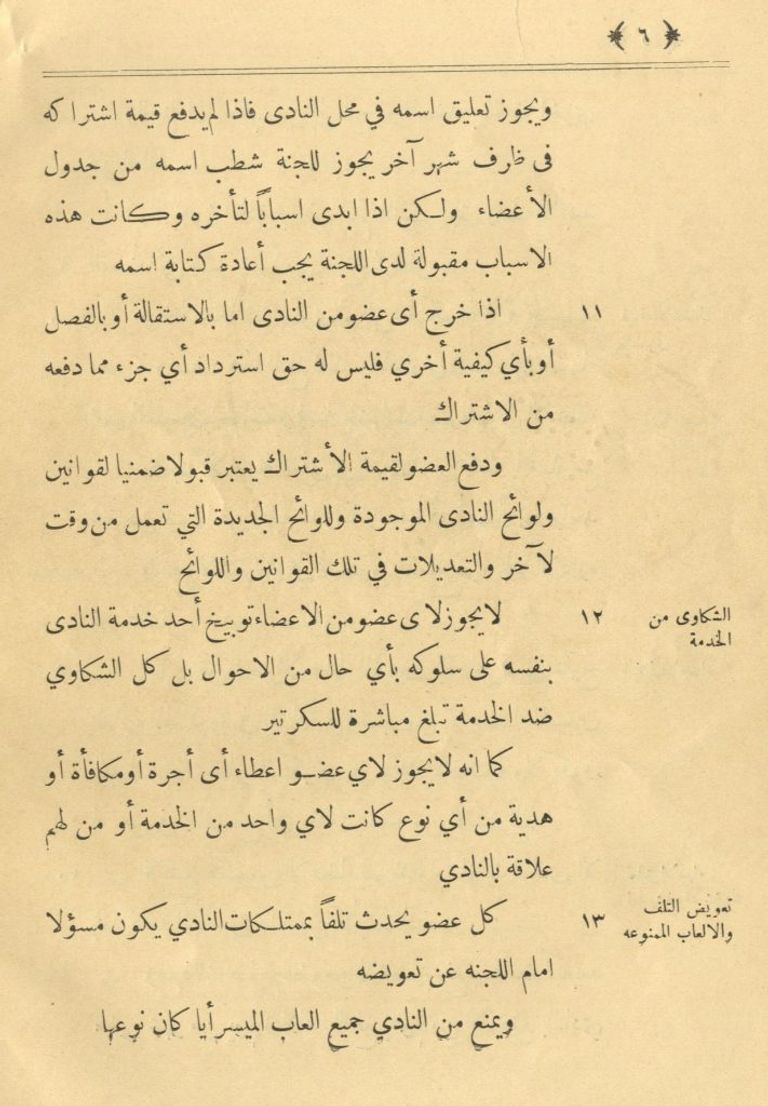 ﴿ ٦ ﴾
ويجوز تعليق اسمه في محل النادى فاذا لم يدفع قيمة اشتراكه
فى ظرف شهر آخر يجوز للجنة شطب اسمه من جدول
الأعضاء ولكن اذا ابدى اسباباً لتأخره وكانت هذه
الاسباب مقبولة لدى اللجنة يجب أعادة كتابة اسمه
١١ اذا خرج أى عضو من النادى اما بالاستقالة أو بالفصل
أو بأي كيفية أخري فليس له حق استرداد أي جزء مما دفعه
من الاشتراك
ودفع العضو لقيمة الأشتراك يعتبر قبولا ضمنيا لقوانين
ولوائح النادى الموجودة وللوائح الجديدة التي تعمل من وقت
لآخر والتعديلات في تلك القوانين واللوائح
الشكاوى من
الخدمة
١٢ لا يجوز لاى عضو من الاعضاء توبيخ أحد خدمة النادى
بنفسه على سلوكه بأي حال من الاحوال بل كل الشكاوي
ضد الخدمة تبلغ مباشرة للسكرتير
كما انه لا يجوز لاي عضو اعطاء أى أجرة أو مكافأة أو
هدية من أي نوع كانت لاي واحد من الخدمة أو من لهم
علاقة بالنادي
تعويض التلف
والالعاب الممنوعه
١٣ كل عضو يحدث تلفاً بممتلكات النادي يكون مسؤلا
امام اللجنه عن تعويضه
ويمنع من النادي جميع العاب الميسر أيا كان نوعها